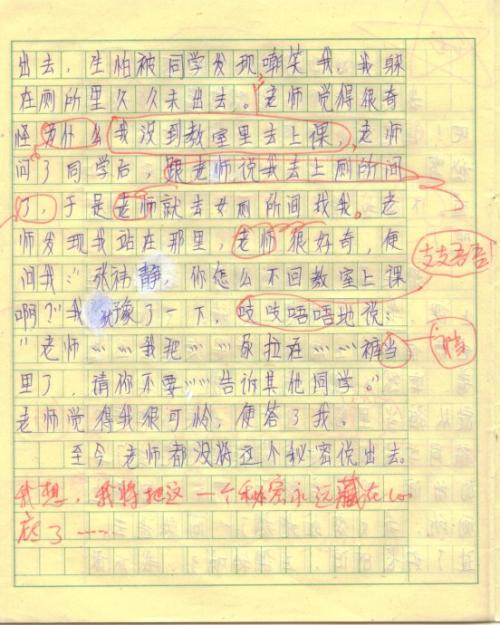 出去，生怕被同学发现嘲笑我。我躲
在厕所里久久未出去。老师觉得很奇
怪为什么我没到教室里去上课，老师
问了同学后，跟老师说我去上厕所间
了，于是老师就去女厕所间找我。老
师发现我站在那里，老师很好奇，便
问我："张祎静，你怎么不回教室上课
啊？"我犹豫了一下，吱吱唔唔地说：
支支吾吾！
"老师……我把……尿拉在……裤当
裆
里了，请你不要……告诉其他同学。"
老师觉得我很可怜，便答了我。
至今老师都没将这个秘密说出去。
我想，我将把这一个秘密永远藏在心
底了……